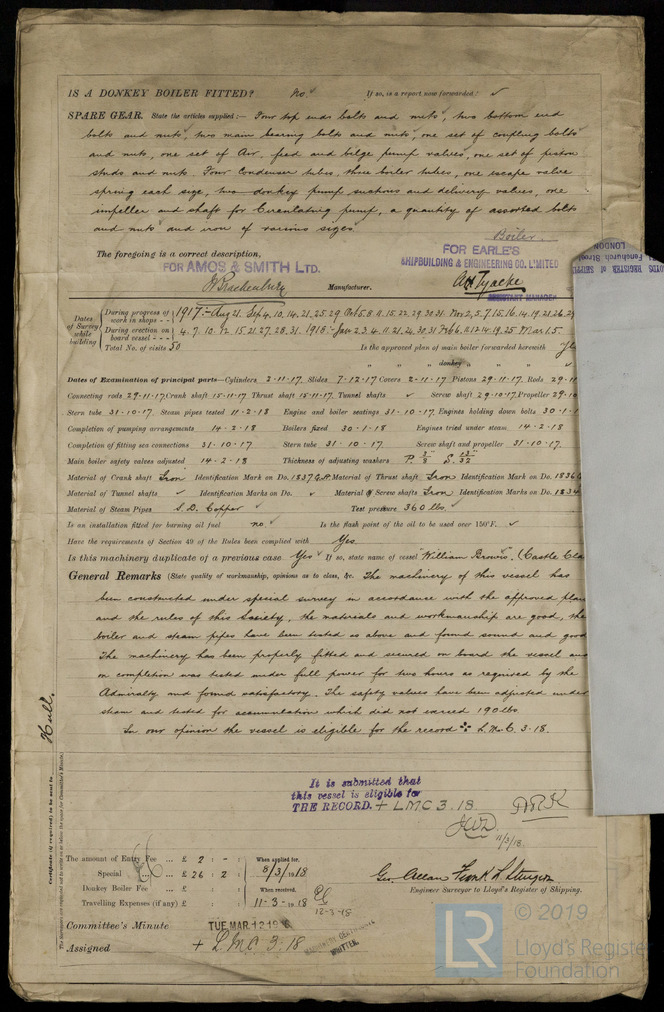 IS A DONKEY BOILER FITTED? No If so, is a report now forwarded?
SPARE GEAR. State the articles supplied:— Four top end bolts and nuts, two bottom end
bolts and nuts, two main bearing bolts and nuts, one set of coupling bolts
and nuts, one set of Air, feed and bilge pump valves, one set of piston
studs and nuts. Four condenser tubes, three boiler tubes, one escape valve
spring each size, two donkey pump suctions and delivery valves, one
impeller and shaft for Circulating pump, a quantity of assorted bolts
and nuts and iron of various sizes.
Boiler.
The foregoing is a correct description,
FOR AMOS & SMITH LTD.
FOR EARLE'S
SHIPBUILDING & ENGINEERING CO. LIMITED
Manufacturer.
AH Tyacke
ASSISTANT MANAGER
Dates of Survey while building
During progress of work in shops - - 1917:- Aug 21. Sep 4. 10. 14. 21. 25. 29. Oct 5. 8. 11. 15. 22. 29. 30. 31. Nov 2. 5. 7. 15. 16. 14. 19. 21. 26. 29
During erection on board vessel - - - 4. 7. 10. 12. 15. 21. 27. 28. 31. 1918:- Jan 2. 3. 4. 11. 21. 24. 30. 31. Feb 6. 11. 12. 14. 19. 25 Mar 1. 5.
Total No. of visits 50
Is the approved plan of main boiler forwarded herewith
" " " donkey " " "
Dates of Examination of principal parts—Cylinders 2-11-17. Slides 7-12-17 Covers 2-11-17. Pistons 29-11-17. Rods 29-11
Connecting rods 29-11-17. Crank shaft 15-11-17 Thrust shaft 15-11-17. Tunnel shafts Screw shaft 29-10-17. Propeller 29-10
Stern tube 31-10-17. Steam pipes tested 11-2-18 Engine and boiler seatings 31-10-17. Engines holding down bolts 30-1-1
Completion of pumping arrangements 14-2-18 Boilers fixed 30-1-18 Engines tried under steam 14-2-18
Completion of fitting sea connections 31-10-17 Stern tube 31-10-17. Screw shaft and propeller 31-10-17.
Main boiler safety valves adjusted 14-2-18 Thickness of adjusting washers P. 3/8 S. 13/32
Material of Crank shaft Iron Identification Mark on Do. 1837 G.A. Material of Thrust shaft Iron Identification Mark on Do. 1836 G
Material of Tunnel shafts Identification Marks on Do. Material of Screw shafts Iron Identification Marks on Do. 1834
Material of Steam Pipes S. D. Copper Test pressure 360 lbs.
Is an installation fitted for burning oil fuel no. Is the flash point of the oil to be used over 150°F.
Have the requirements of Section 49 of the Rules been complied with Yes
Is this machinery duplicate of a previous case Yes If so, state name of vessel William Brown. (Castle Cla
General Remarks (State quality of workmanship, opinions as to class, &c. The machinery of this vessel has
been constructed under special survey in accordance with the approved plan
and the rules of this Society, the materials and workmanship are good, the
boiler and steam pipes have been tested as above and found sound and good
The machinery has been properly fitted and secured on board the vessel and
on completion was tested under full power for two hours as required by the
Admiralty and found satisfactory. The safety valves have been adjusted under
steam and tested for accumulation which did not exceed 190 lbs.
In our opinion the vessel is eligible for the record + L.M.C. 3.18.
It is submitted that
this vessel is eligible for
THE RECORD. + LMC 3.18.
11/3/18
The amount of Entry Fee ... £ 2 : - : When applied for.
Special ... £ 26 : 2 : 8/3/1918
Donkey Boiler Fee ... £ : : When received.
Travelling Expenses (if any) £ : : 11-3-1918
12-3-18
Geo. Allan Frank L. Sturgeon
Engineer Surveyor to Lloyd's Register of Shipping.
Committee's Minute TUE. MAR. 12 1918
Assigned + L.M.C. 3.18
MACHINERY CERTIFICATE
WRITTEN.
Certificate (if required) to be sent to Hull.
The Surveyors are requested not to write on or below the space for Committee's Minute.
Fenchurch Street
LONDON
LR
© 2019
Lloyd's Register
Foundation